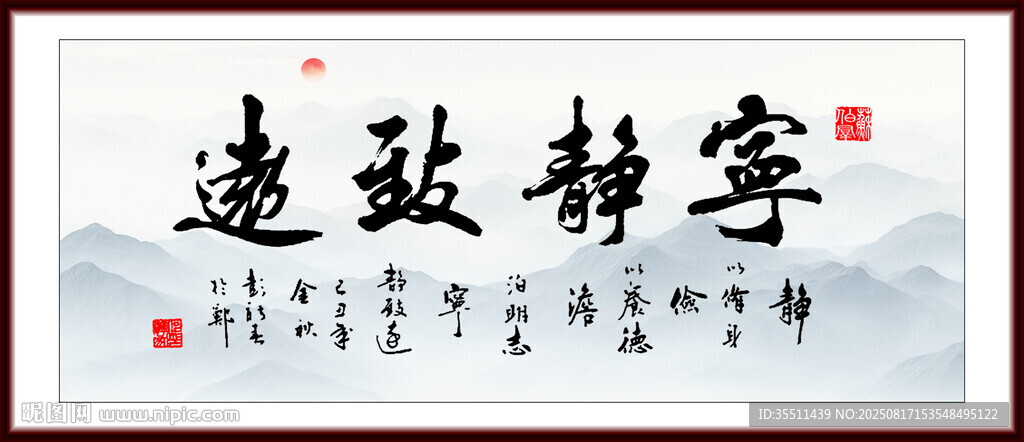 寧靜致遠
靜
以脩身
儉
以養德
澹
泊明志
寧
靜致遠
己丑年
金秋
彭
於鄭
昵图网 www.nipic.com
ID:35511439 NO:20250817153548495122